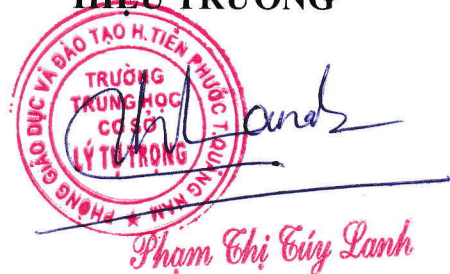 HIỆU TRƯỞNG
PHÒNG GIÁO DỤC VÀ ĐÀO TẠO H. TIÊN PHƯỚC T. QUẢNG NAM
TRƯỜNG
TRUNG HỌC
CƠ SỞ
LÝ TỰ TRỌNG
Lanh
Phạm Thị Túy Lanh